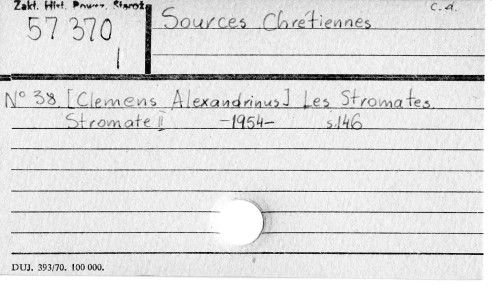 Zakł. Hist. Powsz. Staroż.
C.A.
57 370
1
Sources Chrétiennes
N° 38. [Clemens Alexandrinus] Les Stromates.
Stromate II -1954- s.146
DUJ. 393/70. 100 000.